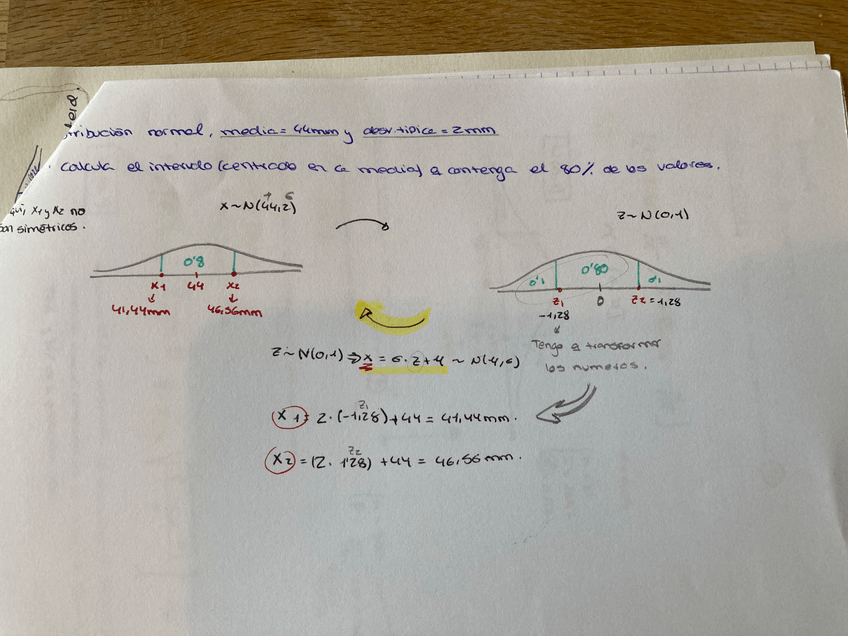 tribución normal, media = 44mm y desv.tipica = 2mm
calcula el intervalo (centrado en la media) q contenga el 80% de los valores.
x1 y x2 no
simétricos.
x ~ N(44,2)
μ σ
z ~ N(0,1)
0'8
x1 44 x2
41,44mm 46,56mm
0'1 0'80 0'1
z1 0 z2 = 1,28
-1,28
Tengo q transformar
los numeros.
z ~ N(0,1) ⇒ x = σ · z + μ ~ N(μ,σ)
z1
x1 = 2 · (-1,28) + 44 = 41,44mm.
z2
x2 = (2 · 1'28) + 44 = 46,56mm.